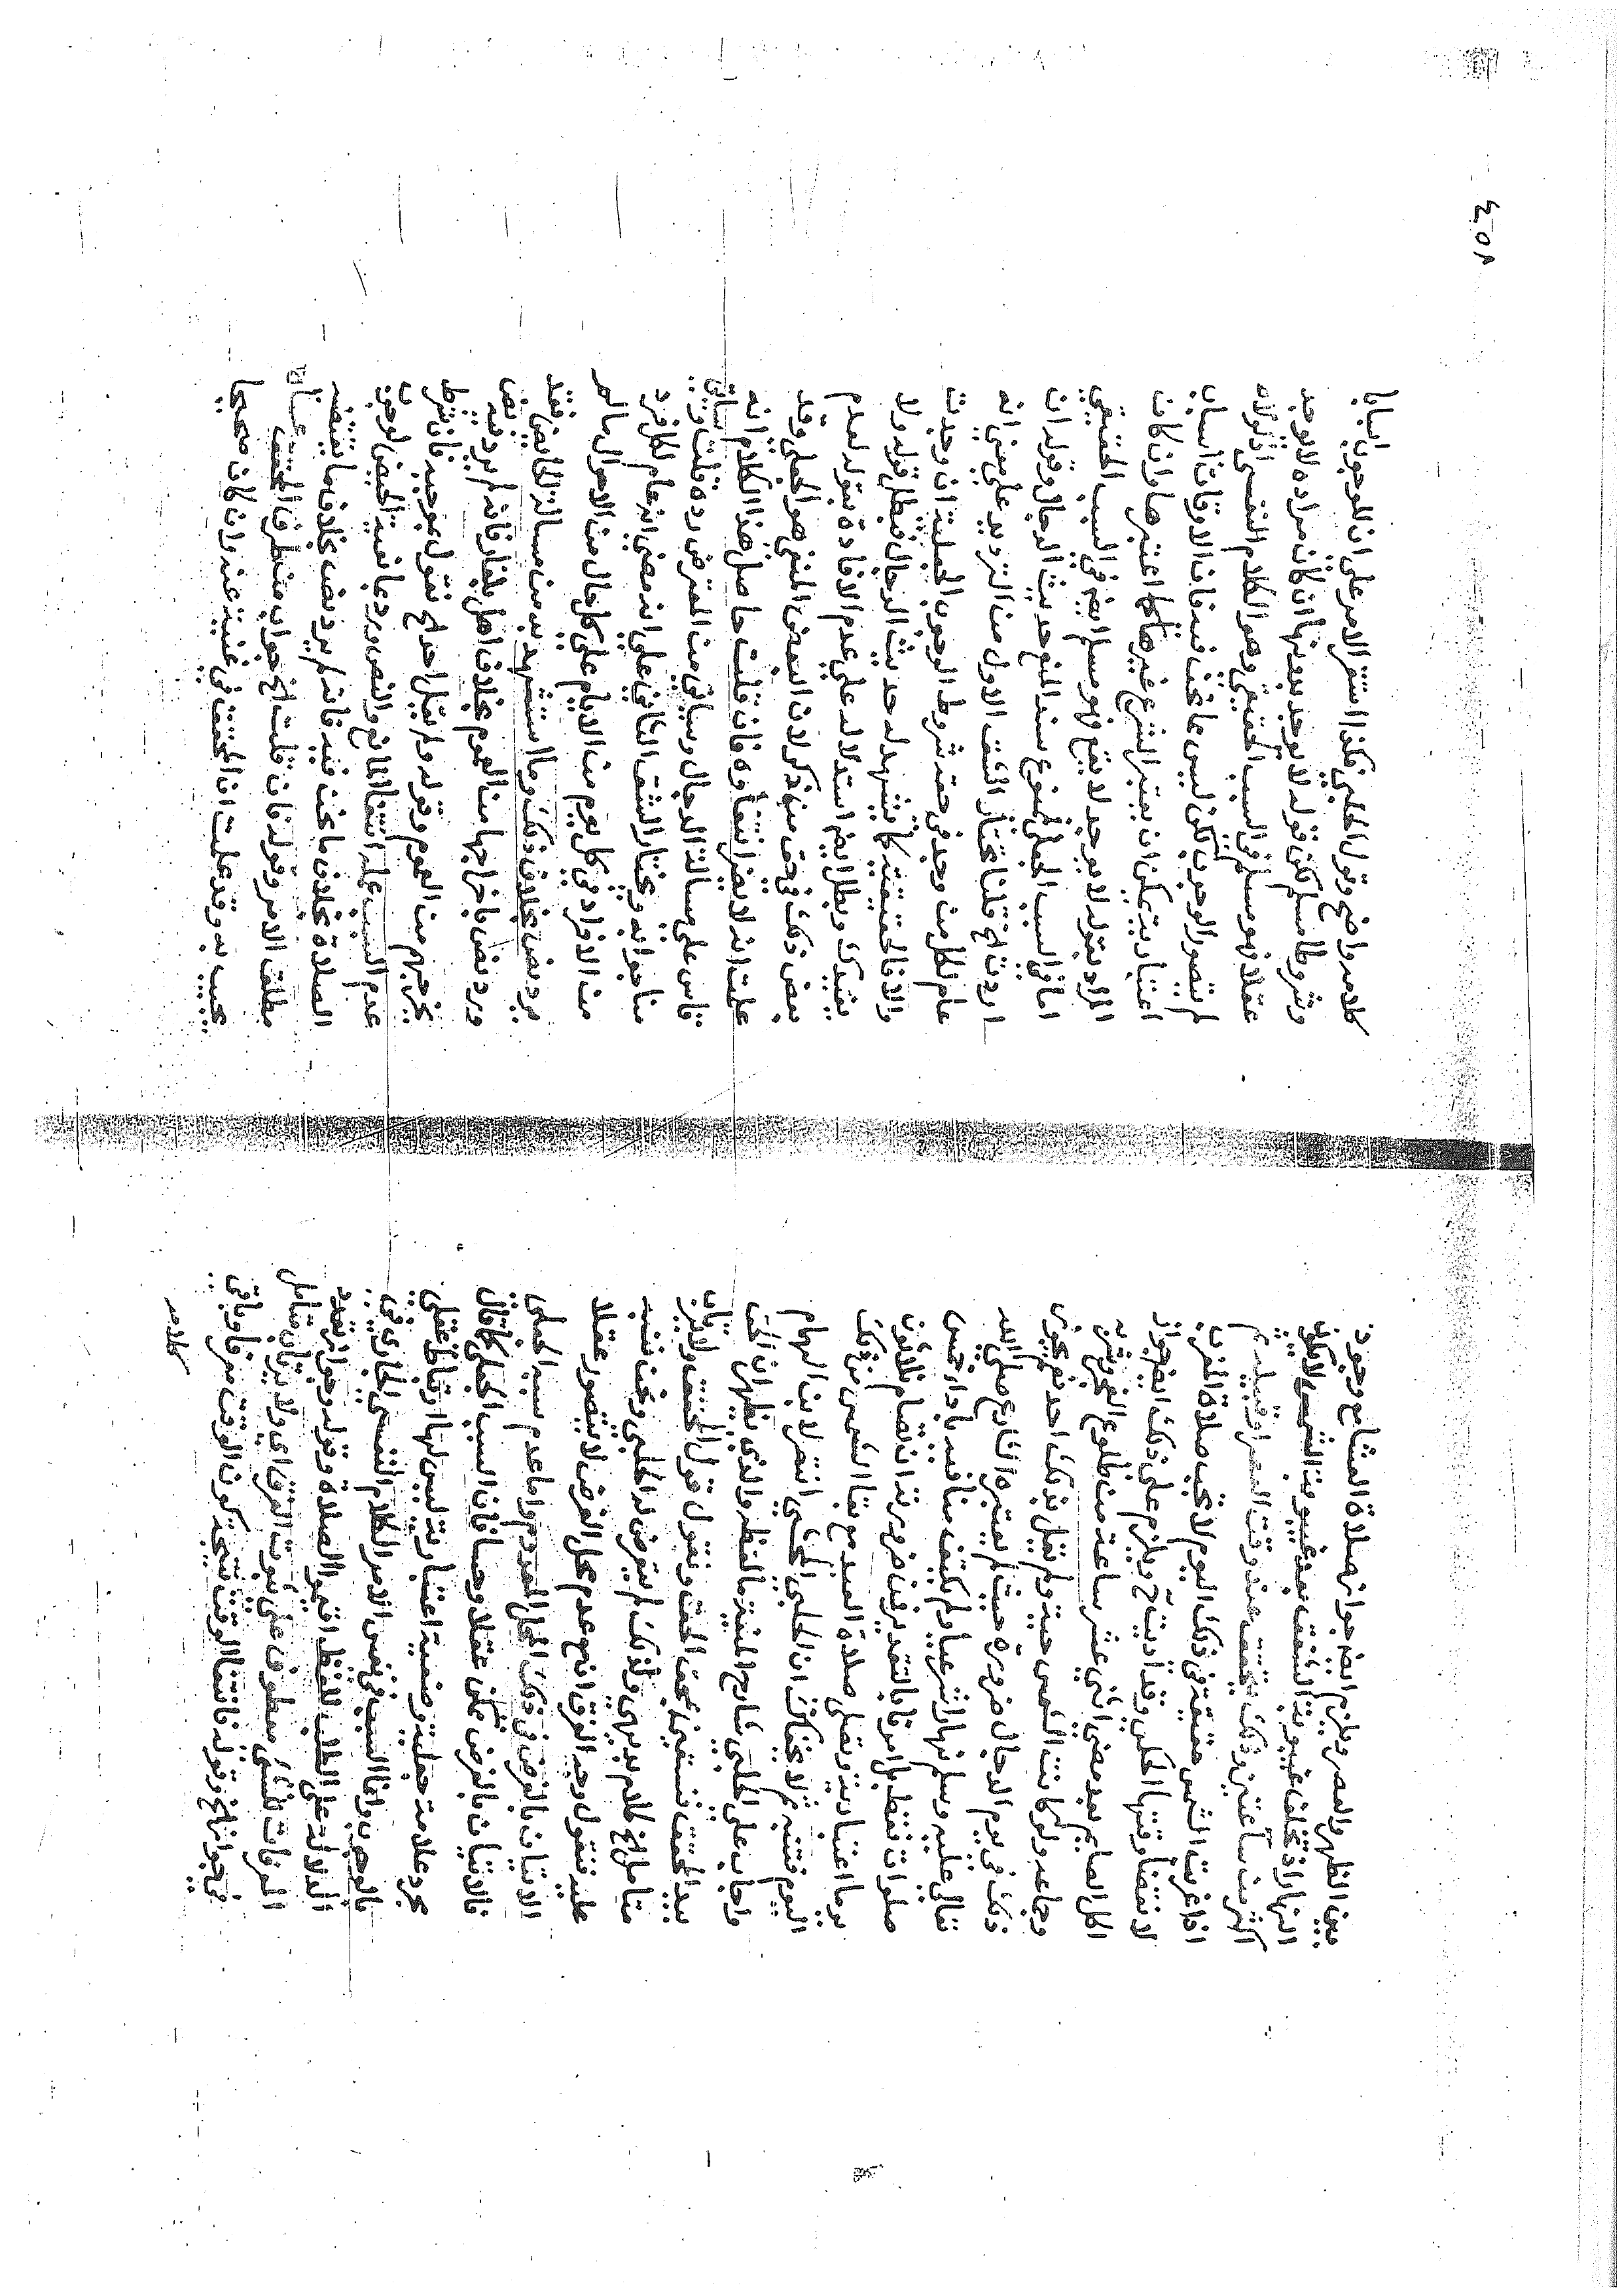 بين الظهر والعصر ويلزم ايضا جواز صلاة العشا مع وجود
النهار اذ تخلف غيبوبة الشفق بعد غيبوبة الشمس لا يكون
اكثر من ساعتين وذلك يتحقق عند وقت العصر او قبيله ثم
اذا غربت الشمس حقيقة في ذلك اليوم لا تجب صلاة المغرب
لانقضا وقتها الممكن وقد اديت ح ويلزم على ذلك ايض جواز
اكل الصايم بعد مضي اثني عشر ساعة من طلوع الفجر وشربه
وجماعه ولو كانت الشمس حية ولم يقل بذلك احد نعم يجوز
ذلك في يوم الدجال ضرورة حيث لم يعتبره الشارع صلى الله
تعالى عليه وسلم نهارا شرعيا ولم يكتف منا فيه باداء خمس
صلوات فقط بل امرنا بالتقدير فمن ضرورته ان نصام ثلاثون
يوما اعتبارية ونصلي صلاة العيد مع بقا الشمس من ذلك
اليوم فتنبه ثم لا يخفاك ان الحلبي المحشي انتصر لابن الهمام
واجاب على الحلبي شارح المنية بالنظر والذي يظهر ان الحق
بيد المحقق فنستعين بحق الحق ونقول قول المحقق ولا يرتاب
متامل الخ كلام بديهي ولذلك لم يتعرض له الحلبي ونحن ننبه
عليه فنقول وجه الفرق الخ عدم محل الفرض لا يتصور عقلا
الاتيان بالفرض في ذلك المحل المعدوم واما عدم سببه الجعلي
فالاتيان بالفرض ممكن عقلا وحسا فان السبب الجعلي كما قال
مجرد علامة جعلية وضعية اعتبارية ليس لها ارتباط عقلي
بالوجوب وانما السبب في نفس الامر الكلام النفسي الجاري في
الدلالة على الطلب للفظ اقيموا الصلاة وقوله وجواز تعدد
المعرفات للشئ معطوف على ثبوت الفرق اي ولا يرتاب متامل
في جوازها الخ وقوله فانتفا الوقت نتيجة كون الوقت معرفا وباقي
كلامه
٤٥٨
كلامه واضح وقول الحلبي هكذا استقر الامر على ان للوجوب اسبابا
وشروطا مسلم لكن قوله لا يوجد بدونها ان كان مراده لا يوجد
عقلا فهو مسلم في السبب الحقيقي وهو الكلام النفسي اذ لولاه
لم يتصور الوجوب لكن ليس مما نحن فيه فان الاوقات اسباب
اعتبارية يمكن ان يعتبر الشرع غيرها كما اعتبرها وان كان
المراد بقوله لا يوجد لا يقع فهو مسلم ايض في السبب الحقيقي
اما في السبب الجعلي فممنوع سند المنع حديث الدجال وقوله ان
اردت الخ قلنا نختار الشق الاول من الترديد على معنى انه
عام لكل من وجد في حقه شروط الوجوب الجعلية ان وجدت
والا فالحقيقية كما يشهد له حديث الدجال فبطل قوله ولا
يفيدك وبطل ايض استدلاله على عدم الافادة بقوله لعدم
بعض ذلك في حق من ذكر لان البعض المنفي هو الجعلي وقد
علمت انه لا يضر انتفاوه فان قلت حاصل هذا الكلام انه
قاس على مسالة الدجال وسياتي من المعترض رده قلت وسياتي
منا جوابه ونختار الشق الثاني على انه معنى انه عام لكل فرد
من الافراد في كل يوم من الايام على كل حال من الاحوال مالم
يرد نص بخلاف ذلك وما استشهد به من مسالة الحايض فقد
ورد نص باخراجها من العموم بخلاف اهل بلغار فانه لم يرد فيه نص
يخرجهم من العموم وقوله ولم يقل احد الخ نقول بموجبه فان شرط
عدم السبب عليه انتفا المانع والنص ورد بمانعية الحيض لوجوب
الصلاة بخلاف ما نحن فيه فانه لم يرد نص بخلاف ما يقتضيه
مطلق الامر وقوله فان قلت الخ جواب متطرق المحقق عساه
يجيب به وقد علمت ان المحقق في غنية عنه وان كان صحيحا